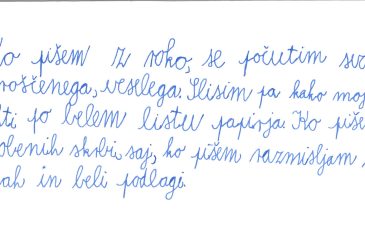 Ko pišem z roko, se počutim svo
roščenega, veselega. Slišim pa kako moj
ti po belem listu papirja. Ko piše
obenih skrbi, saj, ko pišem razmišljam
ah in beli podlagi.